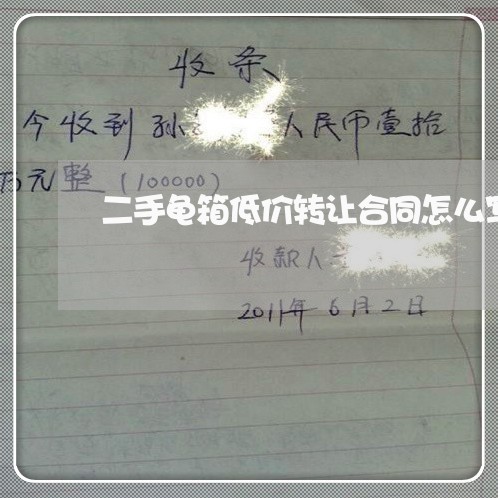 收条
今收到孙 人民币壹拾
万元整(100000)
二手龟箱低价转让合同怎么写
收款人
2011年6月2日